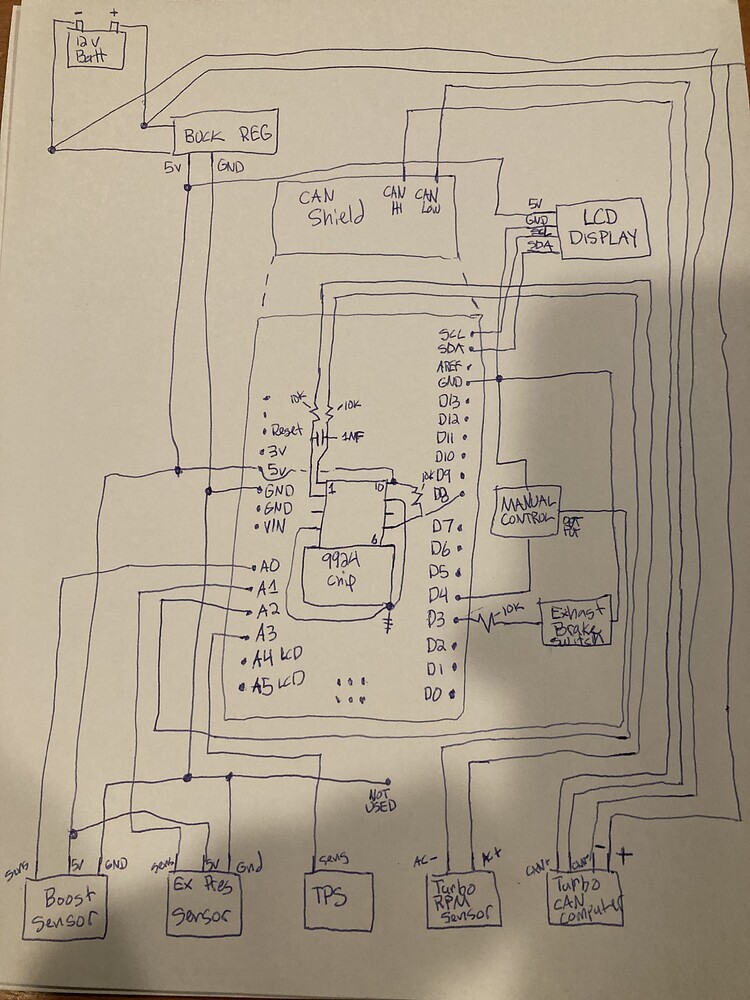 - +
12v
Batt
BUCK REG
5v GND
CAN
Shield
CAN
HI
CAN
Low
5V
GND
SCL
SDA
LCD
DISPLAY
SCL
SDA
AREF
GND
D13
D12
D11
D10
D9
D8
D7
D6
D5
D4
D3
D2
D1
D0
10K
10K
Reset
1NF
3V
5v
GND
GND
VIN
A0
A1
A2
A3
A4 LCD
A5 LCD
1 10
6
9924
chip
10K
MANUAL
CONTROL
POT
10K
Exhast
Brake
Switch
NOT
USED
Sens 5V GND
Boost
Sensor
Sens 5V Gnd
Ex Pres
Sensor
Sens
TPS
AC- AC+
Turbo
RPM
Sensor
CAN+ CAN- - +
Turbo
CAN
Computer